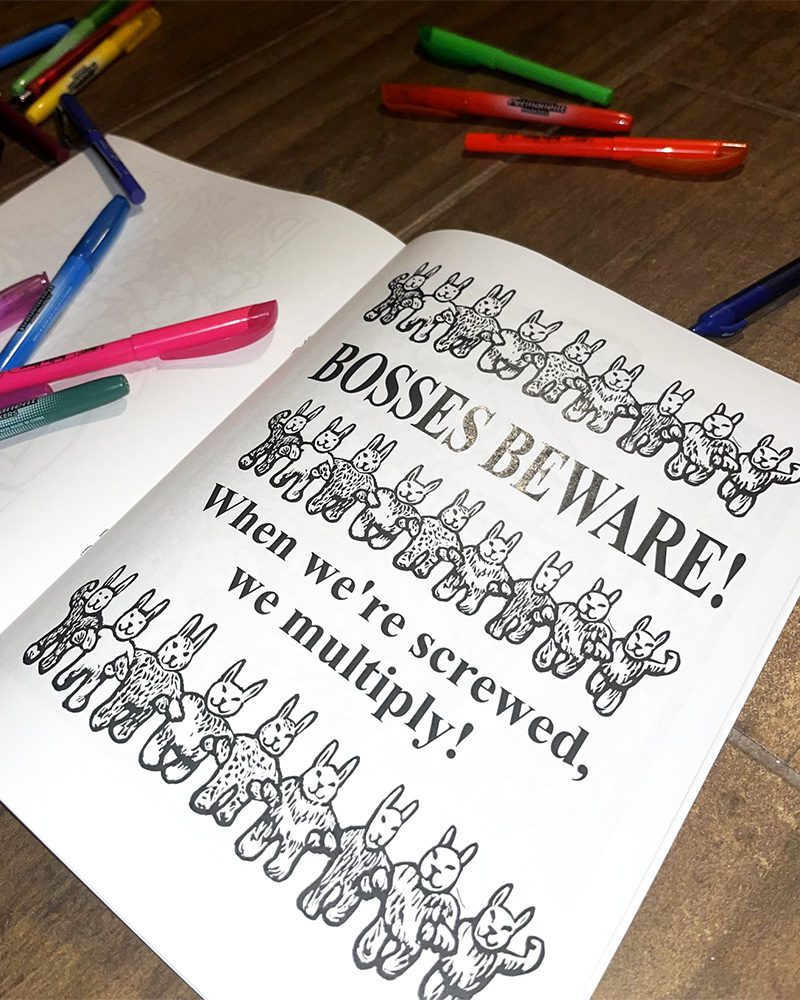 BOSSES BEWARE!
When we're screwed,
we multiply!